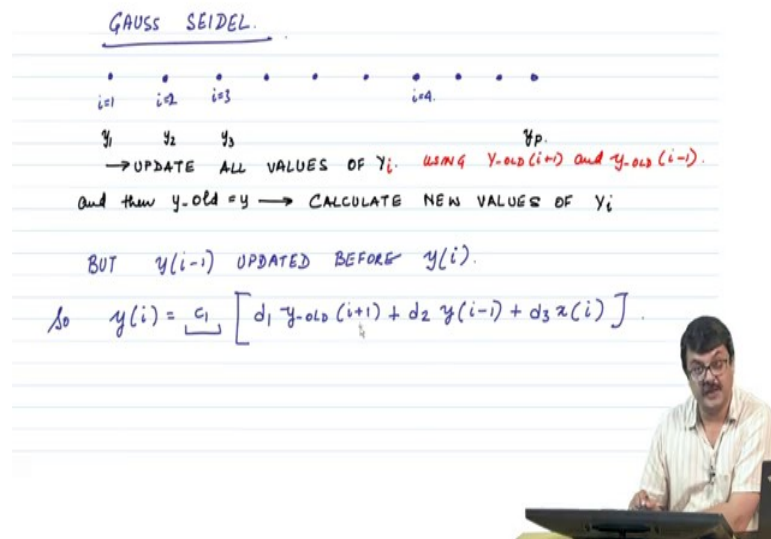 GAUSS SEIDEL.
i=1 i=2 i=3 i=4.
y1 y2 y3 yp.
→ UPDATE ALL VALUES OF Yi. USING Y-OLD(i+1) and y-OLD(i-1).
and then y-old = y → CALCULATE NEW VALUES OF Yi
BUT y(i-1) UPDATED BEFORE y(i).
So y(i) = c1 [d1 y-OLD (i+1) + d2 y(i-1) + d3 x(i)].